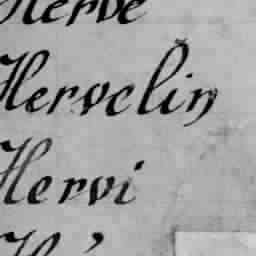 Herve
Hervelin
Hervi